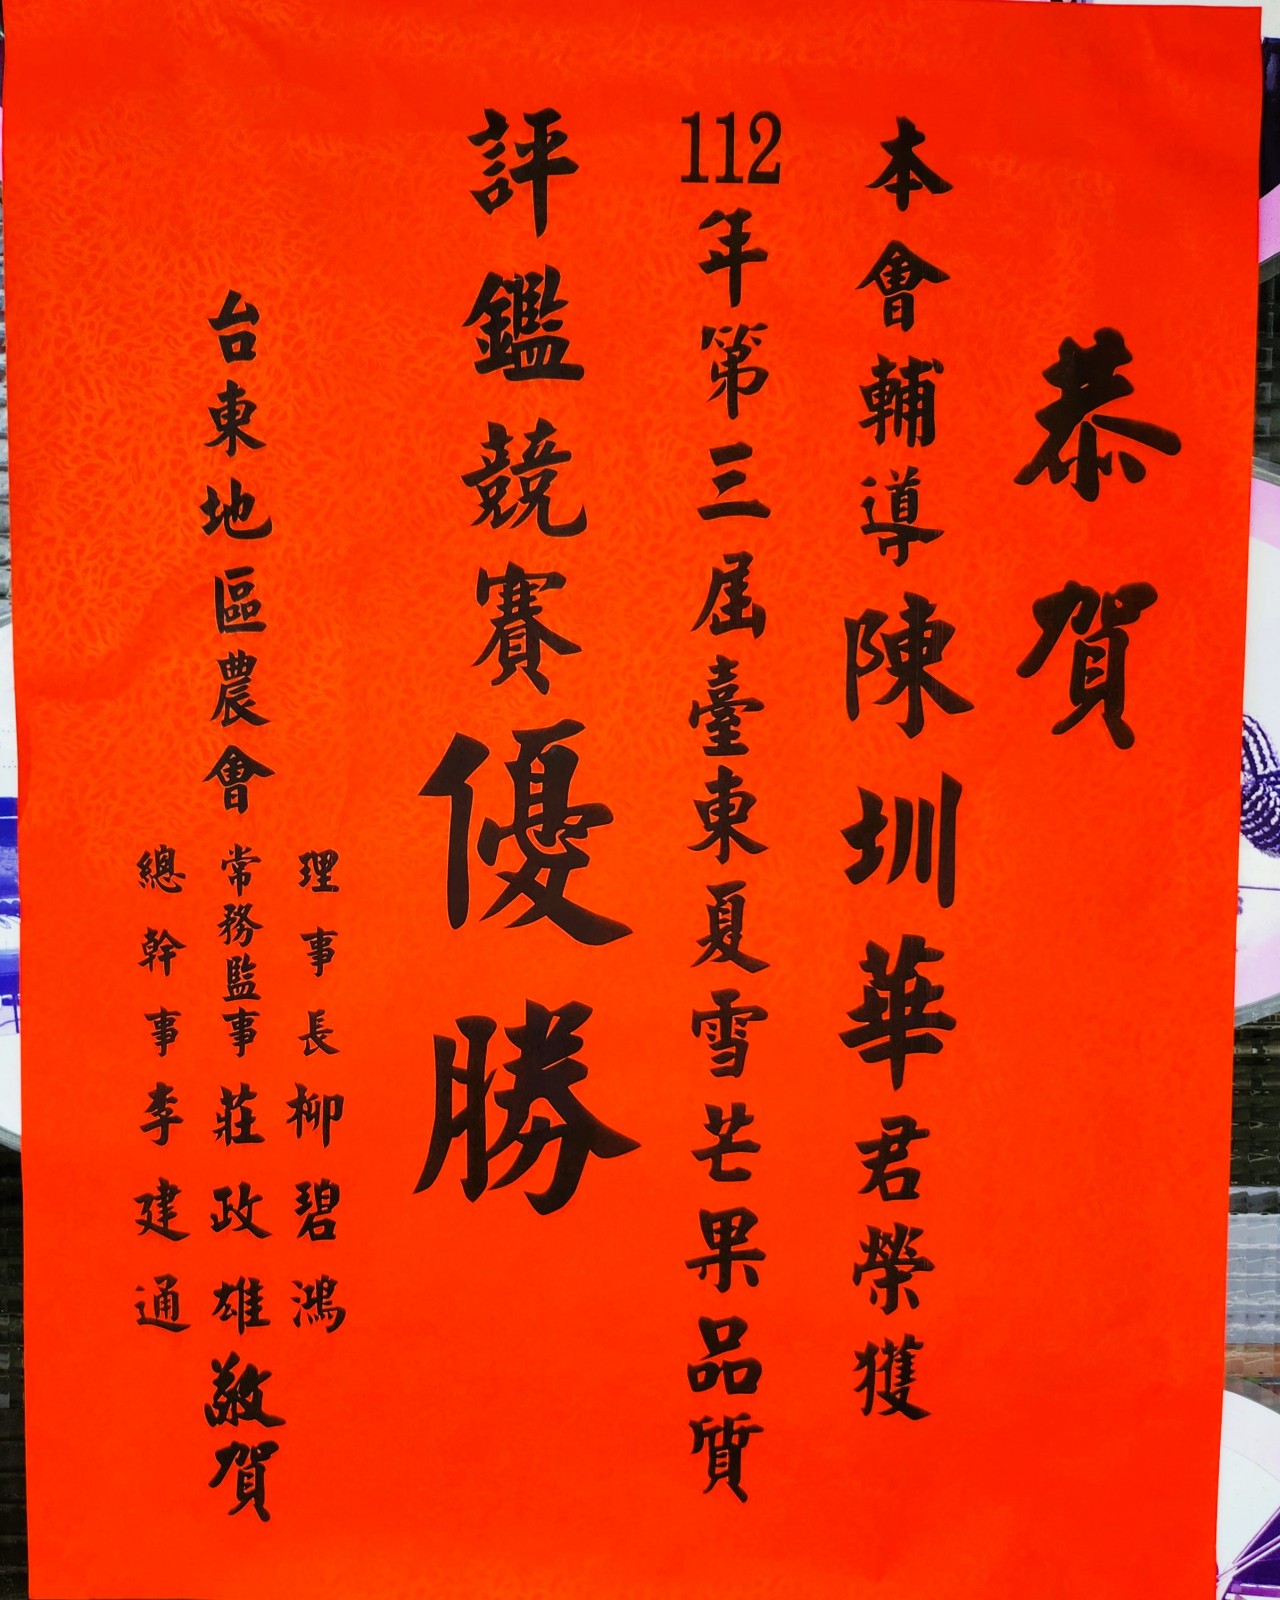 恭賀
本會輔導陳圳華君榮獲
112年第三屆臺東夏雪芒果品質
評鑑競賽優勝
理事長柳碧鴻
台東地區農會常務監事莊政雄敬賀
總幹事李建通